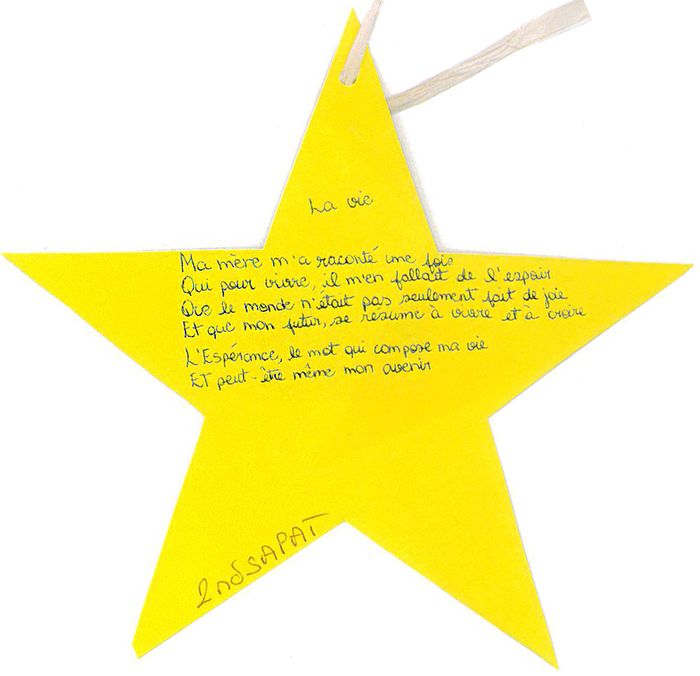 La vie
Ma mère m'a raconté une fois
Qui pour vivre, il m'en fallait de l'espoir
Que le monde n'était pas seulement fait de joie
Et que mon futur, se résume à vivre et à croire
L'Espérance, le mot qui compose ma vie
ET peut-être même mon avenir
2ndSAPAT